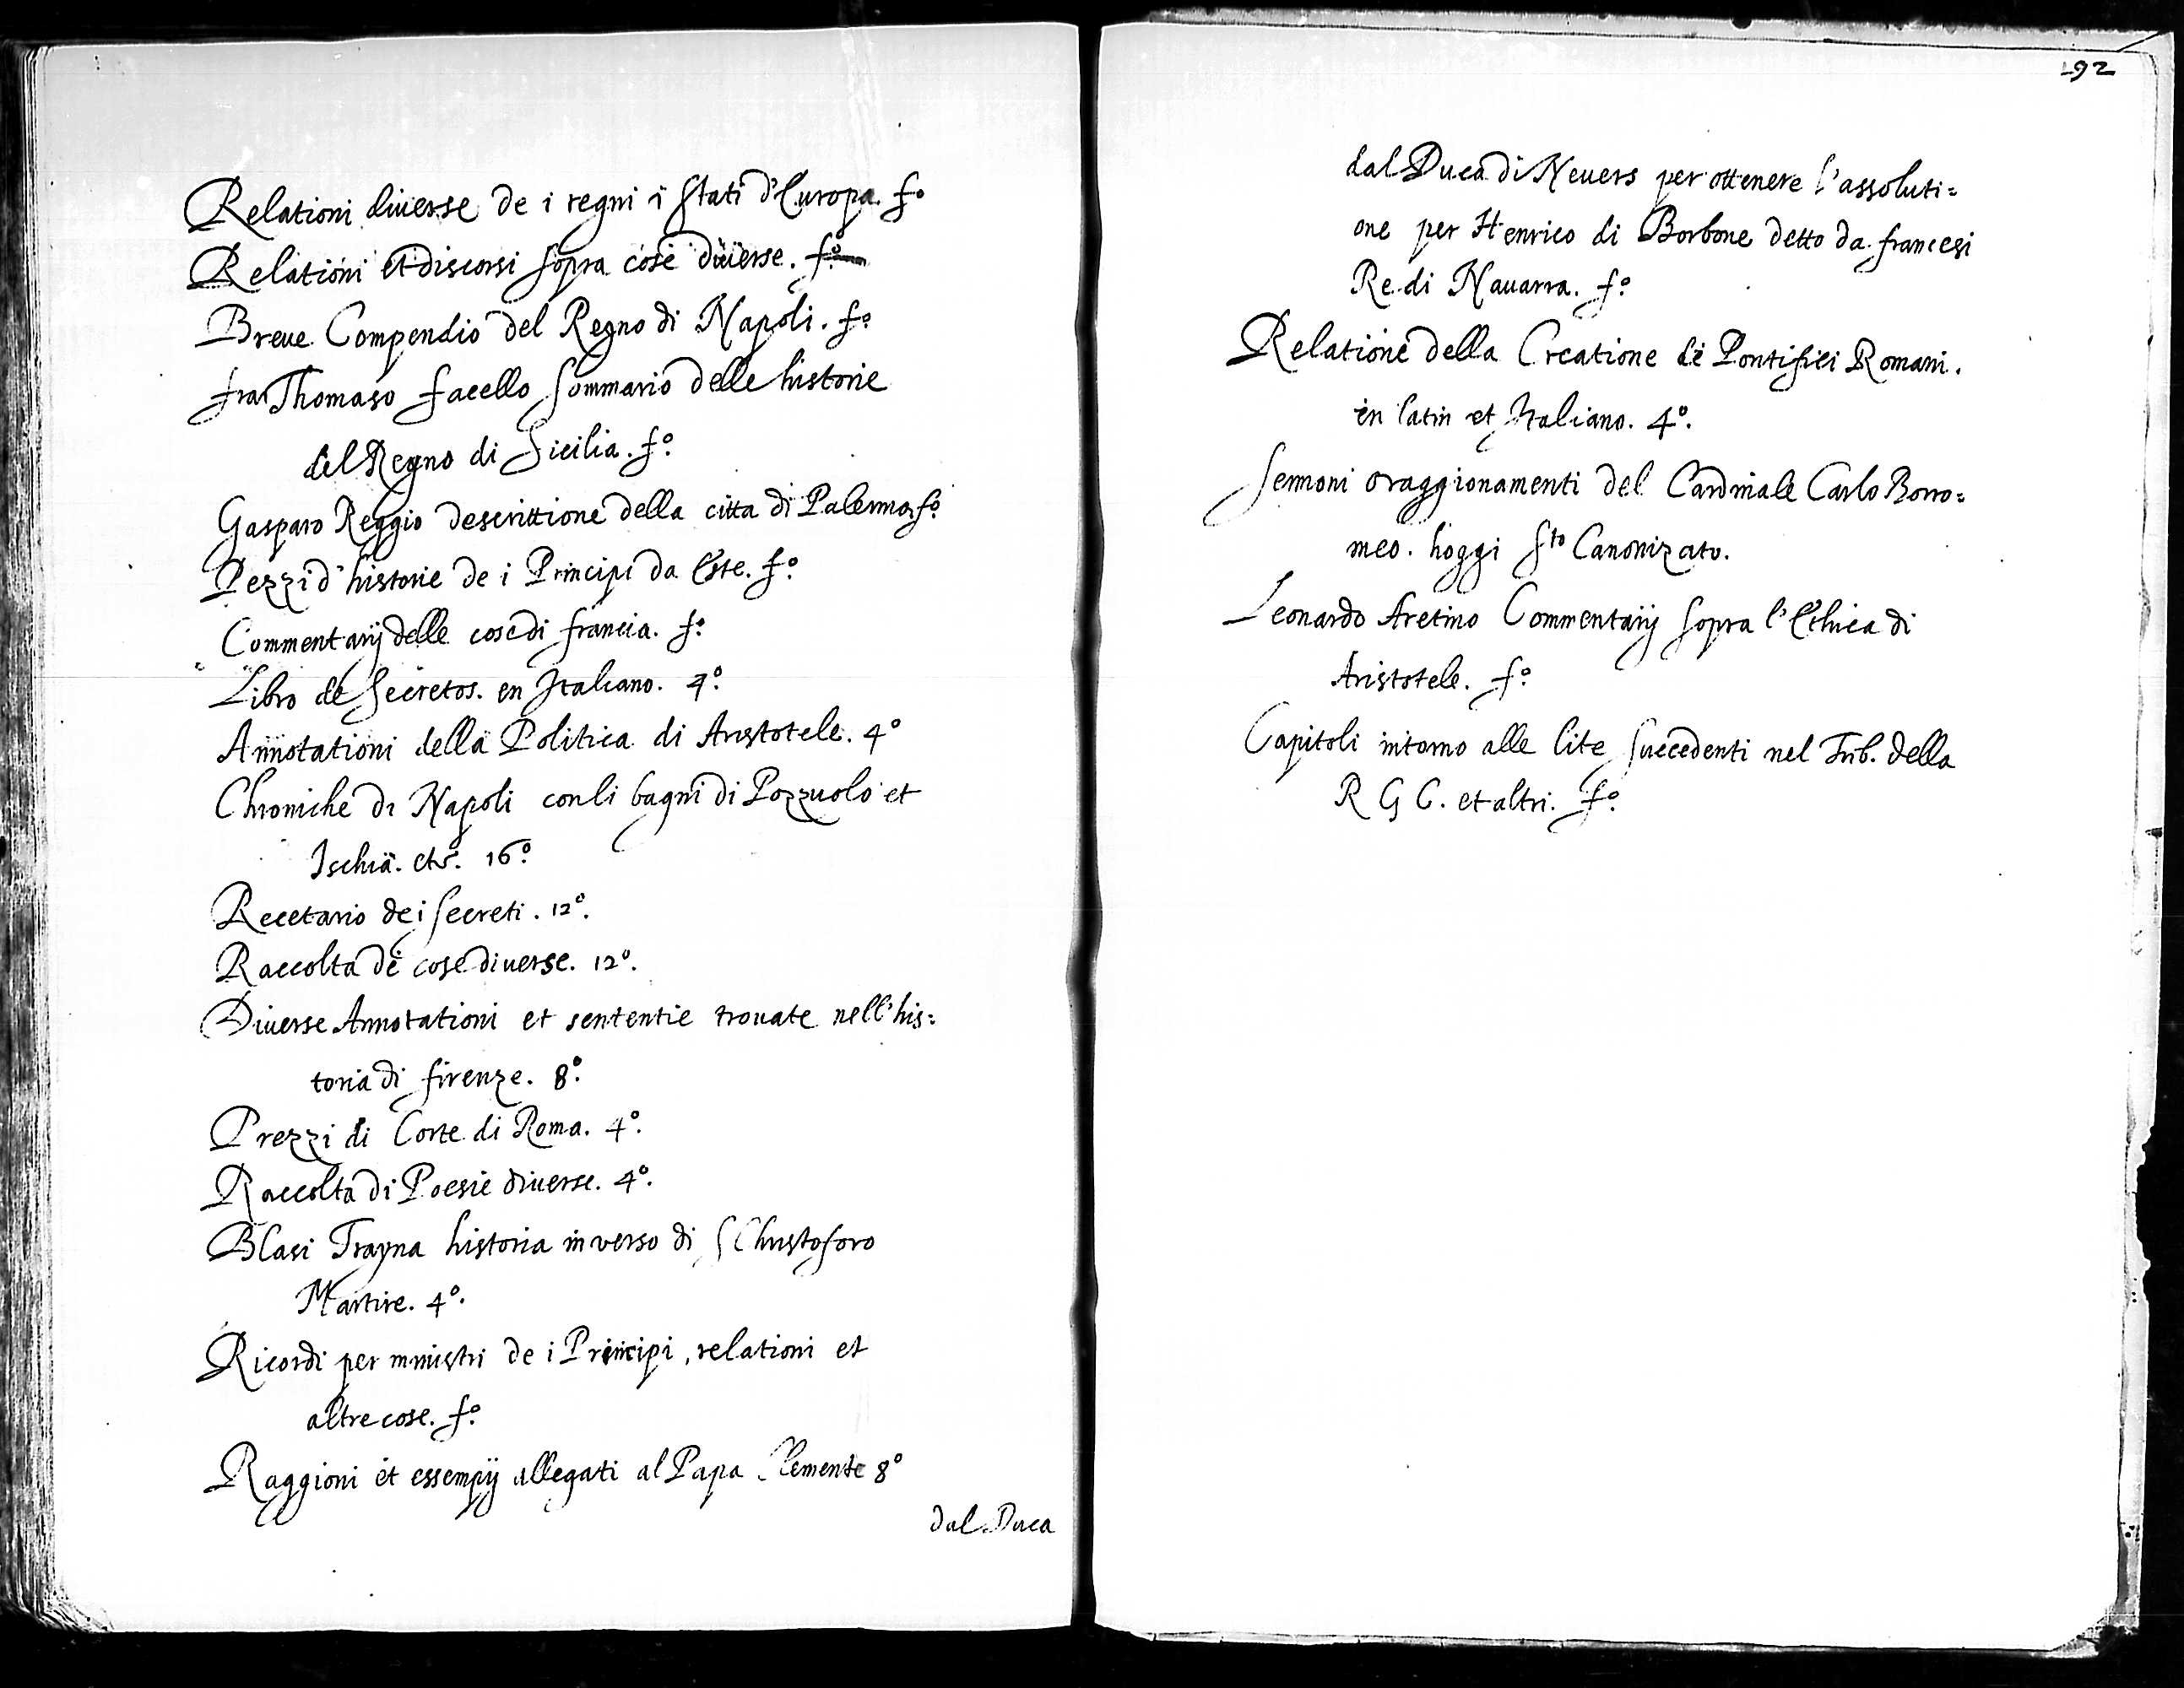 Relationi diuerse de i regni i stati d'Europa. fº
Relationi et discorsi sopra cose diuerse. fº.
Breue Compendio del Regno di Napoli. fº.
fra Thomaso facello sommario delle historie
del Regno di Sicilia. fº.
Gasparo Reggio descrittione della citta di Palermo. fº.
Pezzi d'historie de i Principi da Este. fº.
Commentarij delle cose di francia. fº.
Libro de secretos. en Italiano. 4º.
Annotationi della Politica di Aristotele. 4º
Chroniche di Napoli con li bagni di Pozzuolo et
Ischia. etc. 16º.
Recetario de i secreti. 12º.
Raccolta de cose diuerse. 12º.
Diuerse Annotationi et sententie trouate nell'his=
toria di firenze. 8º.
Prezzi di Corte di Roma. 4º.
Raccolta di Poesie diuerse. 4º.
Blasi Trayna historia in verso di S Christoforo
Martire. 4º.
Ricordi per ministri de i Principi, relationi et
altre cose. fº.
Raggioni et essempij allegati al Papa Clemente 8º
dal Duca
192
dal Duca di Neuers per ottenere l'assoluti=
one per Henrico di Borbone detto da francesi
Re di Nauarra. fº.
Relatione della Creatione de Pontifici Romani.
in latin et Italiano. 4º.
Sermoni o raggionamenti del Cardinale Carlo Borro=
meo. hoggi Sto Canonizato.
Leonardo Aretino Commentarij sopra l'Ethica di
Aristotele. fº.
Capitoli intorno alle lite succedenti nel Trib. della
R G C. et altri. fº.